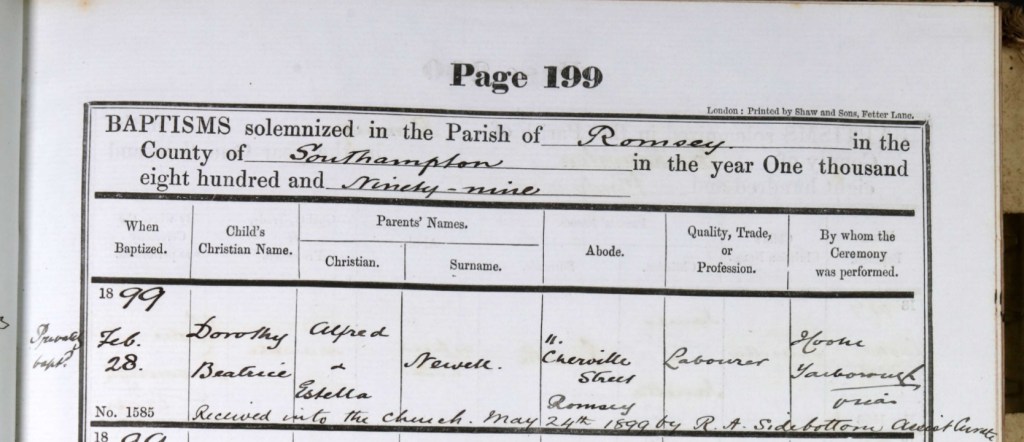 Page 199
London : Printed by Shaw and Sons, Fetter Lane.
BAPTISMS solemnized in the Parish of Romsey in the
County of Southampton in the year One thousand
eight hundred and Ninety-nine
When Baptized.
Child's Christian Name.
Parents' Names.
Christian.
Surname.
Abode.
Quality, Trade, or Profession.
By whom the Ceremony was performed.
1899
Privately bapt.d
Feb. 28.
Dorothy Beatrice
Alfred & Estella
Newell.
11. Cherville Street Romsey
Labourer
Cooke Yarborough Vicar
No. 1585
Received into the Church. May 24th 1899 by R. A. Sidebottom Assist Curate
1899